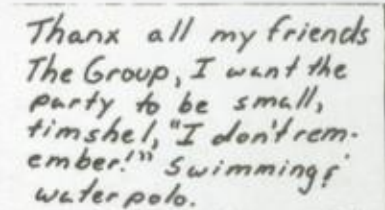 Thanx all my friends
The Group, I want the
party to be small,
timshel, "I don't rem-
ember!" Swimming &
water polo.